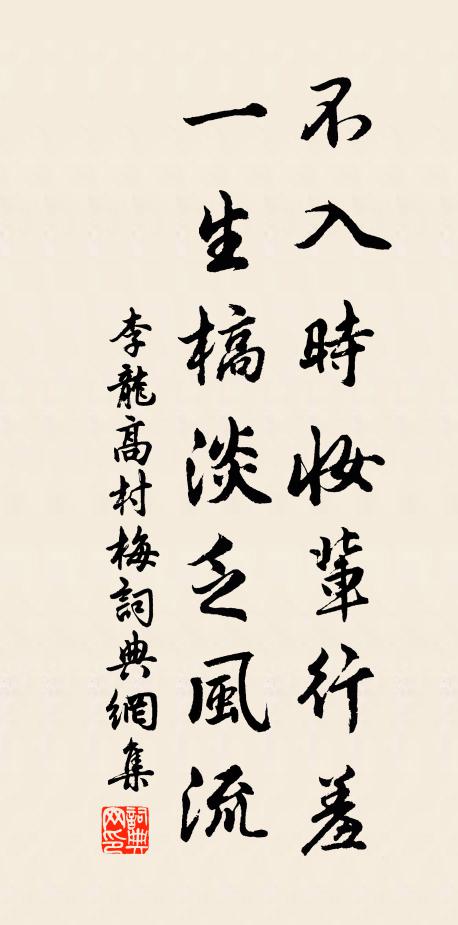 不入時妝輩行羞
一生槁淡乏風流
李龍高村梅詞典網集
詞典網印